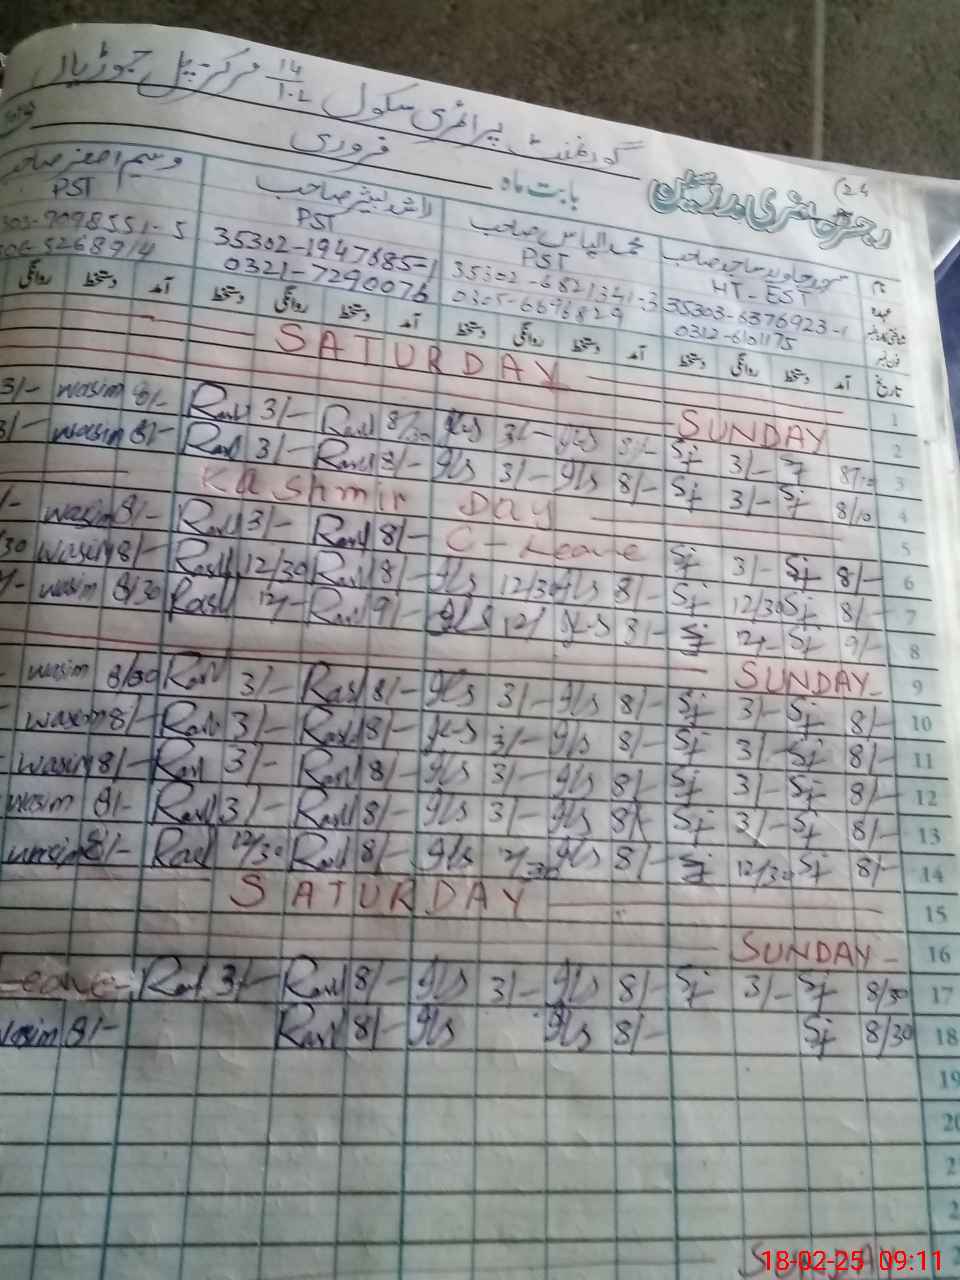 گورنمنٹ پرائمری سکول 14/1.L مرکز پل جوڑیاں
رجسٹر حاضری مدرسین بابت ماہ فروری
نام محمد الیاس صاحب راشد بشیر صاحب وسیم اصغر صاحب
عہدہ HT-EST PST PST PST
35303-6376923-1 35302-6821341-3 35302-1947685-1 303-9098551-5
0312-6101175 0305-6696829 0321-7290076 306-5268914
تاریخ آمد دستخط روانگی دستخط آمد دستخط روانگی دستخط آمد دستخط روانگی دستخط آمد دستخط روانگی
1 SATURDAY
2 SUNDAY
3 8/10 Sj 3/- Sj 8/- gls 3/- gls 8/30 Rasl 3/- Rasl 8/- wasim 3/-
4 8/10 Sj 3/- Sj 8/- gls 3/- gls 8/- Rasl 3/- Rasl 8/- wasim 3/-
5 Kashmir Day
6 8/- Sj 3/- Sj C-Leave 8/- Rasl 3/- Rasl 8/- wasim /-
7 8/- Sj 12/30 Sj 8/- gls 12/30 gls 8/- Rasl 12/30 Rasl 8/- wasim /30
8 9/- Sj 12/- Sj 8/- gls 12/ gls 9/- Rasl 12/- Rasl 8/30 wasim /-
9 SUNDAY
10 8/- Sj 3/- Sj 8/- gls 3/- gls 8/- Rasl 3/- Rasl 8/30 wasim -
11 8/- Sj 3/- Sj 8/- gls 3/- gls 8/- Rasl 3/- Rasl 8/- wasim -
12 8/- Sj 3/- Sj 8/- gls 3/- gls 8/- Rasl 3/- Rasl 8/- wasim -
13 8/- Sj 3/- Sj 8/- gls 3/- gls 8/- Rasl 3/- Rasl 8/- wasim
14 8/- Sj 12/30 Sj 8/- gls 12/30 gls 8/- Rasl 12/30 Rasl 8/- wasim
15 SATURDAY
16 SUNDAY
17 8/30 Sj 3/- Sj 8/- gls 3/- gls 8/- Rasl 3/- Rasl Leave
18 8/30 Sj 8/- gls gls 8/- Rasl 8/- wasim
19
20
2
2
SUNDAY
18-02-25 09:11